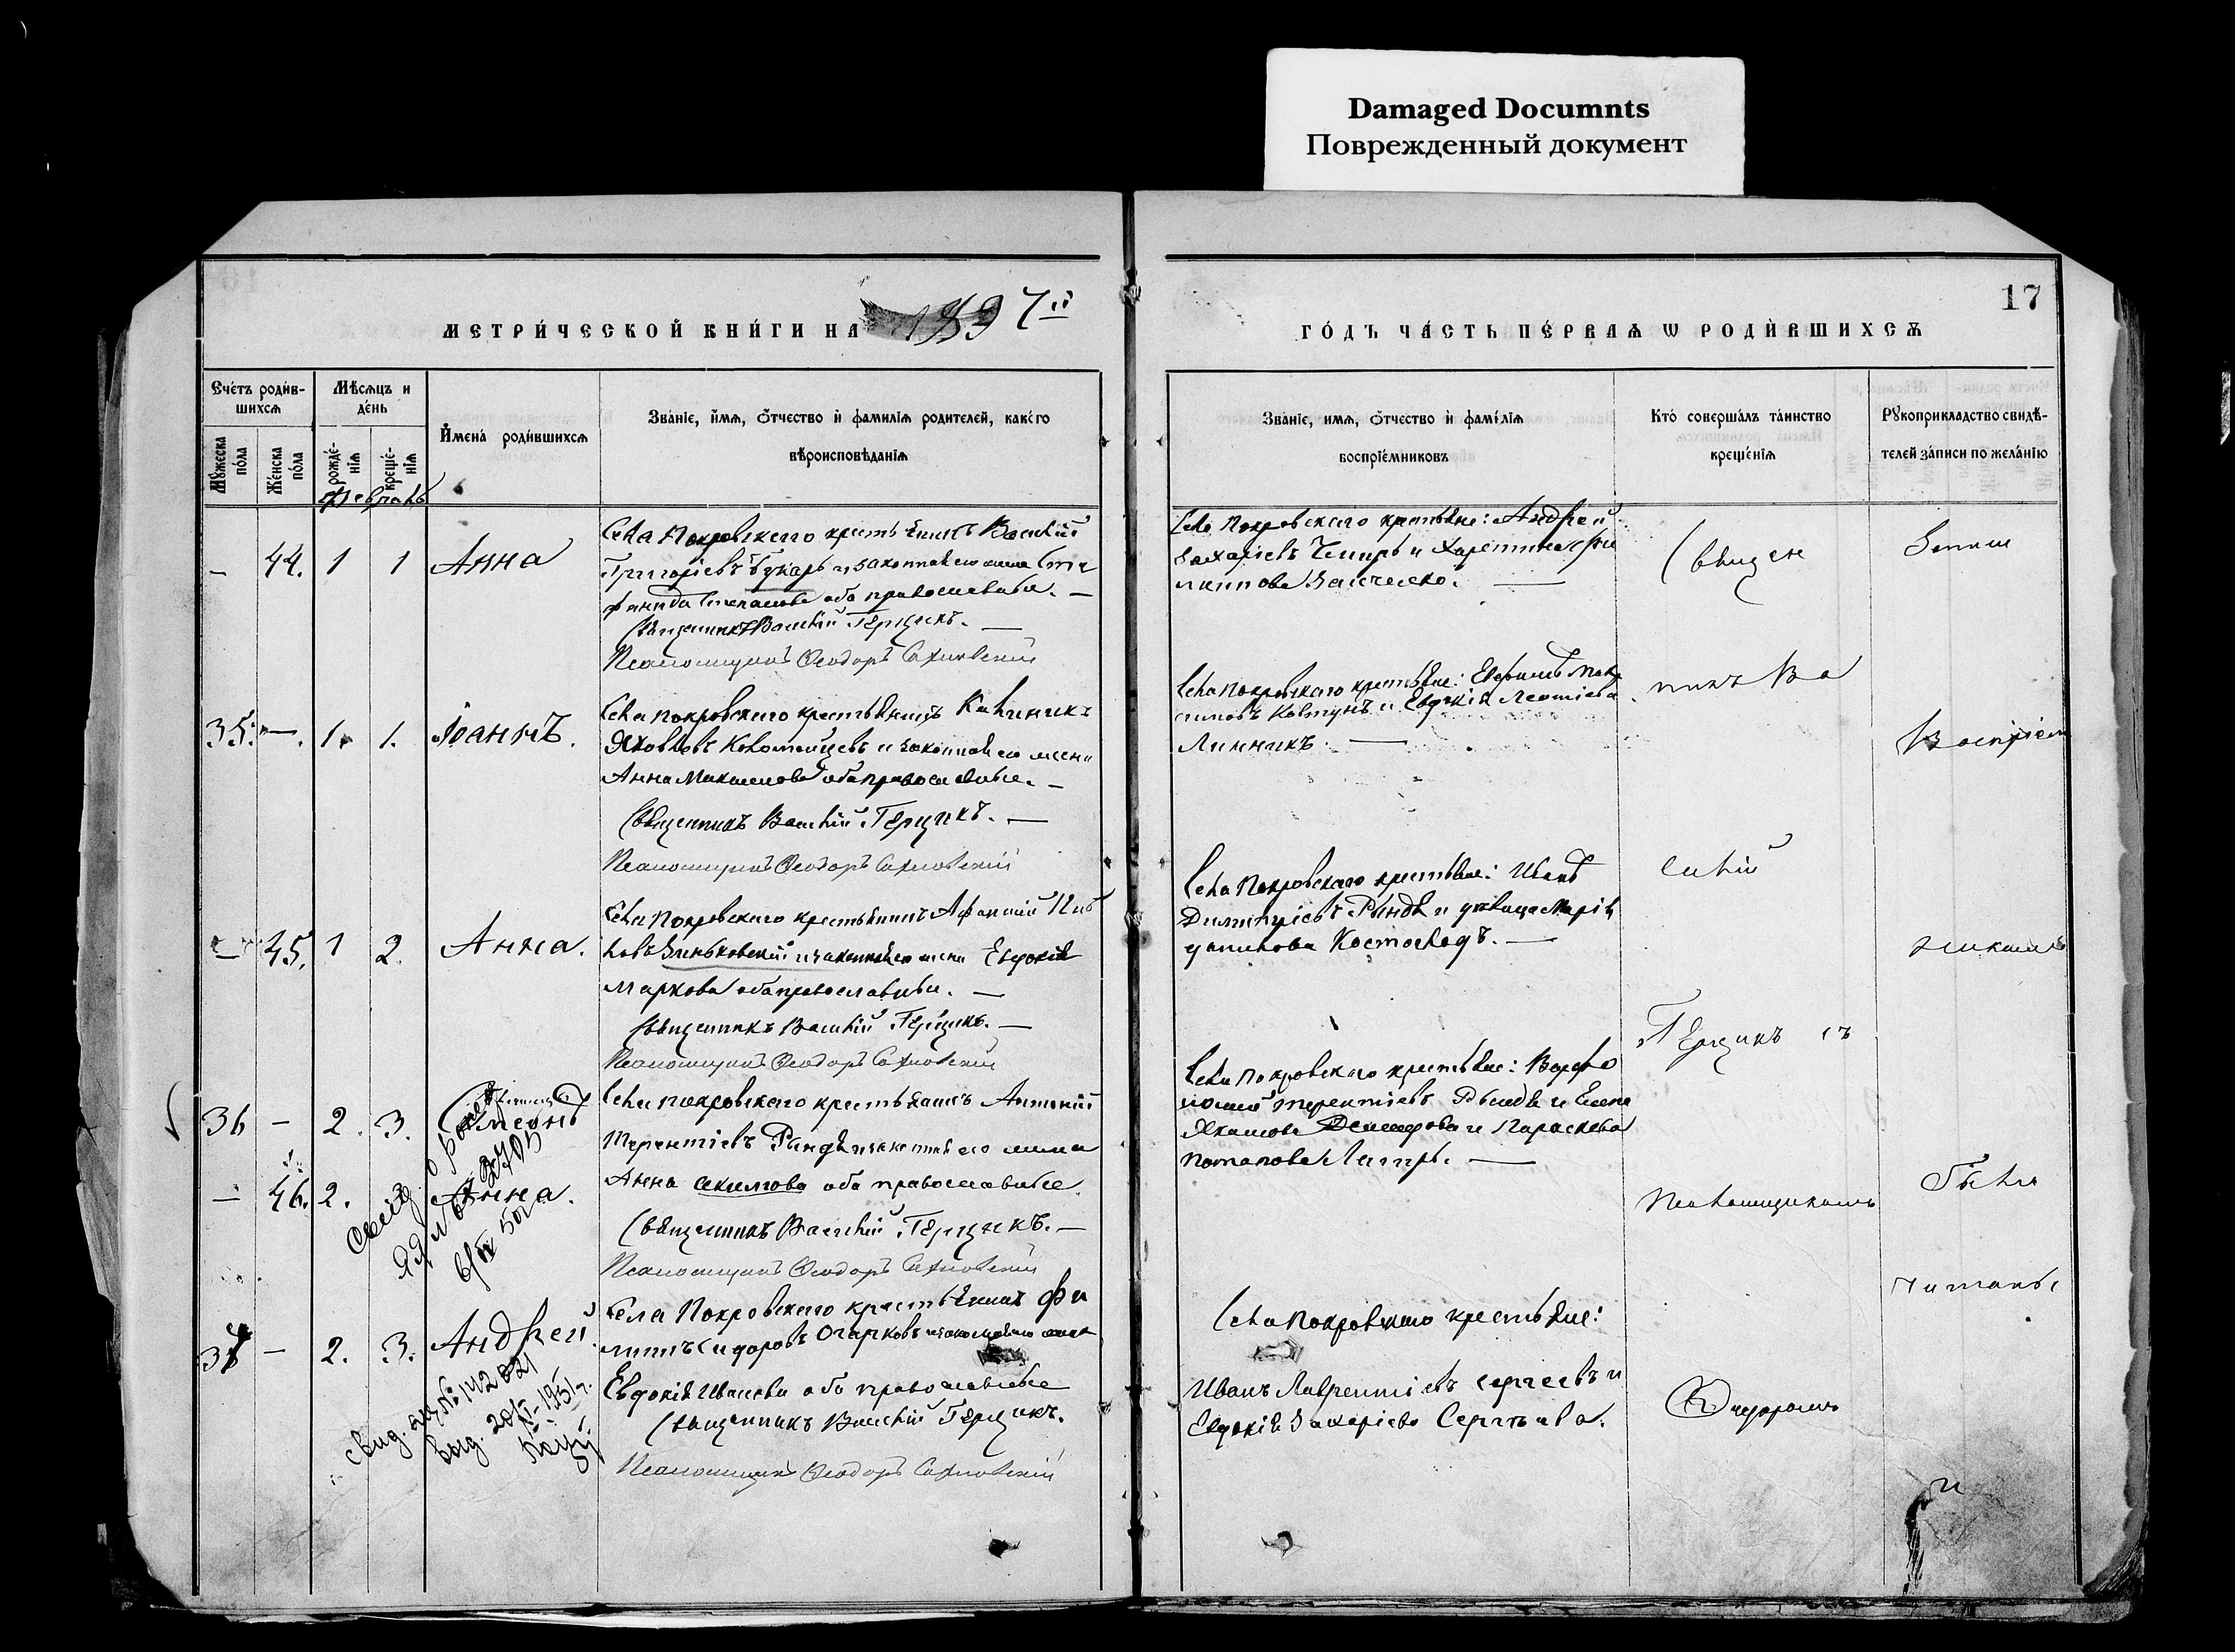 Damaged Documnts
Поврежденный документ
МЕТРИ́ЧЕСКОЙ КНИ́ГИ НА 1897й
ГО́ДЪ ЧА́СТЬ ПЕ́РВАѦ Ѡ РОДИ́ВШИХСѦ
17
Счетъ роди́в-
шихсѧ
Мꙋ́жеска
по́ла
Же́нска
по́ла
Мѣ́сѧцъ и
де́нь
рожде́-
нїѧ
креще́-
нїѧ
Февраль
И҆мена̀ роди́вшихсѧ
Зва́нїе, и҆́мѧ, ѻ҆́тчество и҆ фами́лїѧ роди́телей, како́гѡ
вѣроисповѣ́данїѧ
Зва́нїе, имѧ, ѻ҆́тчество и҆ фамі́лїѧ
воспрїе́мниковъ
Кто̀ соверша́лъ та́инство
креще́нїѧ
Рꙋкоприкла́дство свидѣ́-
телей за́писи по жела́нїю
- 44. 1 1 Анна
Села Покровскаго крестьянинъ Василій
Григоріевъ Букарь и законная его жена Сте
фанида Степанова оба православные. —
Священникъ Василій Герцикъ. —
Псаломщикъ Ѳеодоръ Сахновскій
Села Покровскаго крестьяне: Андрей
Захаріевъ Чмиръ и Харитина Фи
липпова —
35. — 1. 1. Іоаннъ.
Села Покровскаго крестьянинъ Калиникъ
Яковлевъ Коломойцевъ и законная его жена
Анна Максимова оба православные. —
Священникъ Василій Герцикъ. —
Псаломщикъ Ѳеодоръ Сахновскій
Села Покровскаго крестьяне: Евфимъ Мак
симовъ Ковтунъ и Евдокія Леонтіева
Линникъ. —
— 45. 1 2. Анна.
Села Покровскаго крестьянинъ Афанасій Пав
ловъ Зиньковскій и законная его жена Евдокія
Маркова оба православные. —
Священникъ Василій Герцикъ. —
Псаломщикъ Ѳеодоръ Сахновскій
Села Покровскаго крестьяне: Иванъ
Димитріевъ Рындя и девица Марія
Данилова —
36 — 2. 3. Симеонъ
— 46. 2. Анна.
Села Покровскаго крестьянинъ Антоній
Терентіевъ Рындя и законная его жена
Анна Акимова оба православные
Священникъ Василій Герцикъ. —
Псаломщикъ Ѳеодоръ Сахновскій
Села Покровскаго крестьяне: Варфо
ломей Терентіевъ Рындя и Елена
Якимова и Параскева
Потапова —
Свид. о рожд.
ЯЯ № 2705
37 — 2. 3. Андрей.
Села Покровскаго крестьянинъ Фи
липпъ Сидоровъ Огарковъ и законная его жена
Евдокія Иванова оба православные
Священникъ Василій Герцикъ.
Псаломщикъ Ѳеодоръ Сахновскій
Села Покровскаго крестьяне:
Иванъ Лаврентіевъ Сергеевъ и
Евдокія Захаріева Сергѣева.
свид. № 142021
выд. 20/XI-1951 г.
Священ
никъ Ва
силій
Герцикъ съ
Псаломщикомъ
Ѳеодоромъ
Запис
Воспріем
никамъ
были
читаны
и